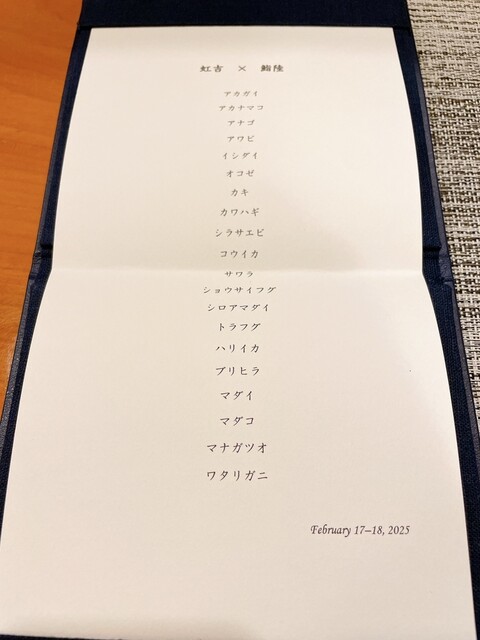 虹吉 × 鮨陸
アカガイ
アカナマコ
アナゴ
アワビ
イシダイ
オコゼ
カキ
カワハギ
シラサエビ
コウイカ
サワラ
ショウサイフグ
シロアマダイ
トラフグ
ハリイカ
ブリヒラ
マダイ
マダコ
マナガツオ
ワタリガニ
February 17–18, 2025